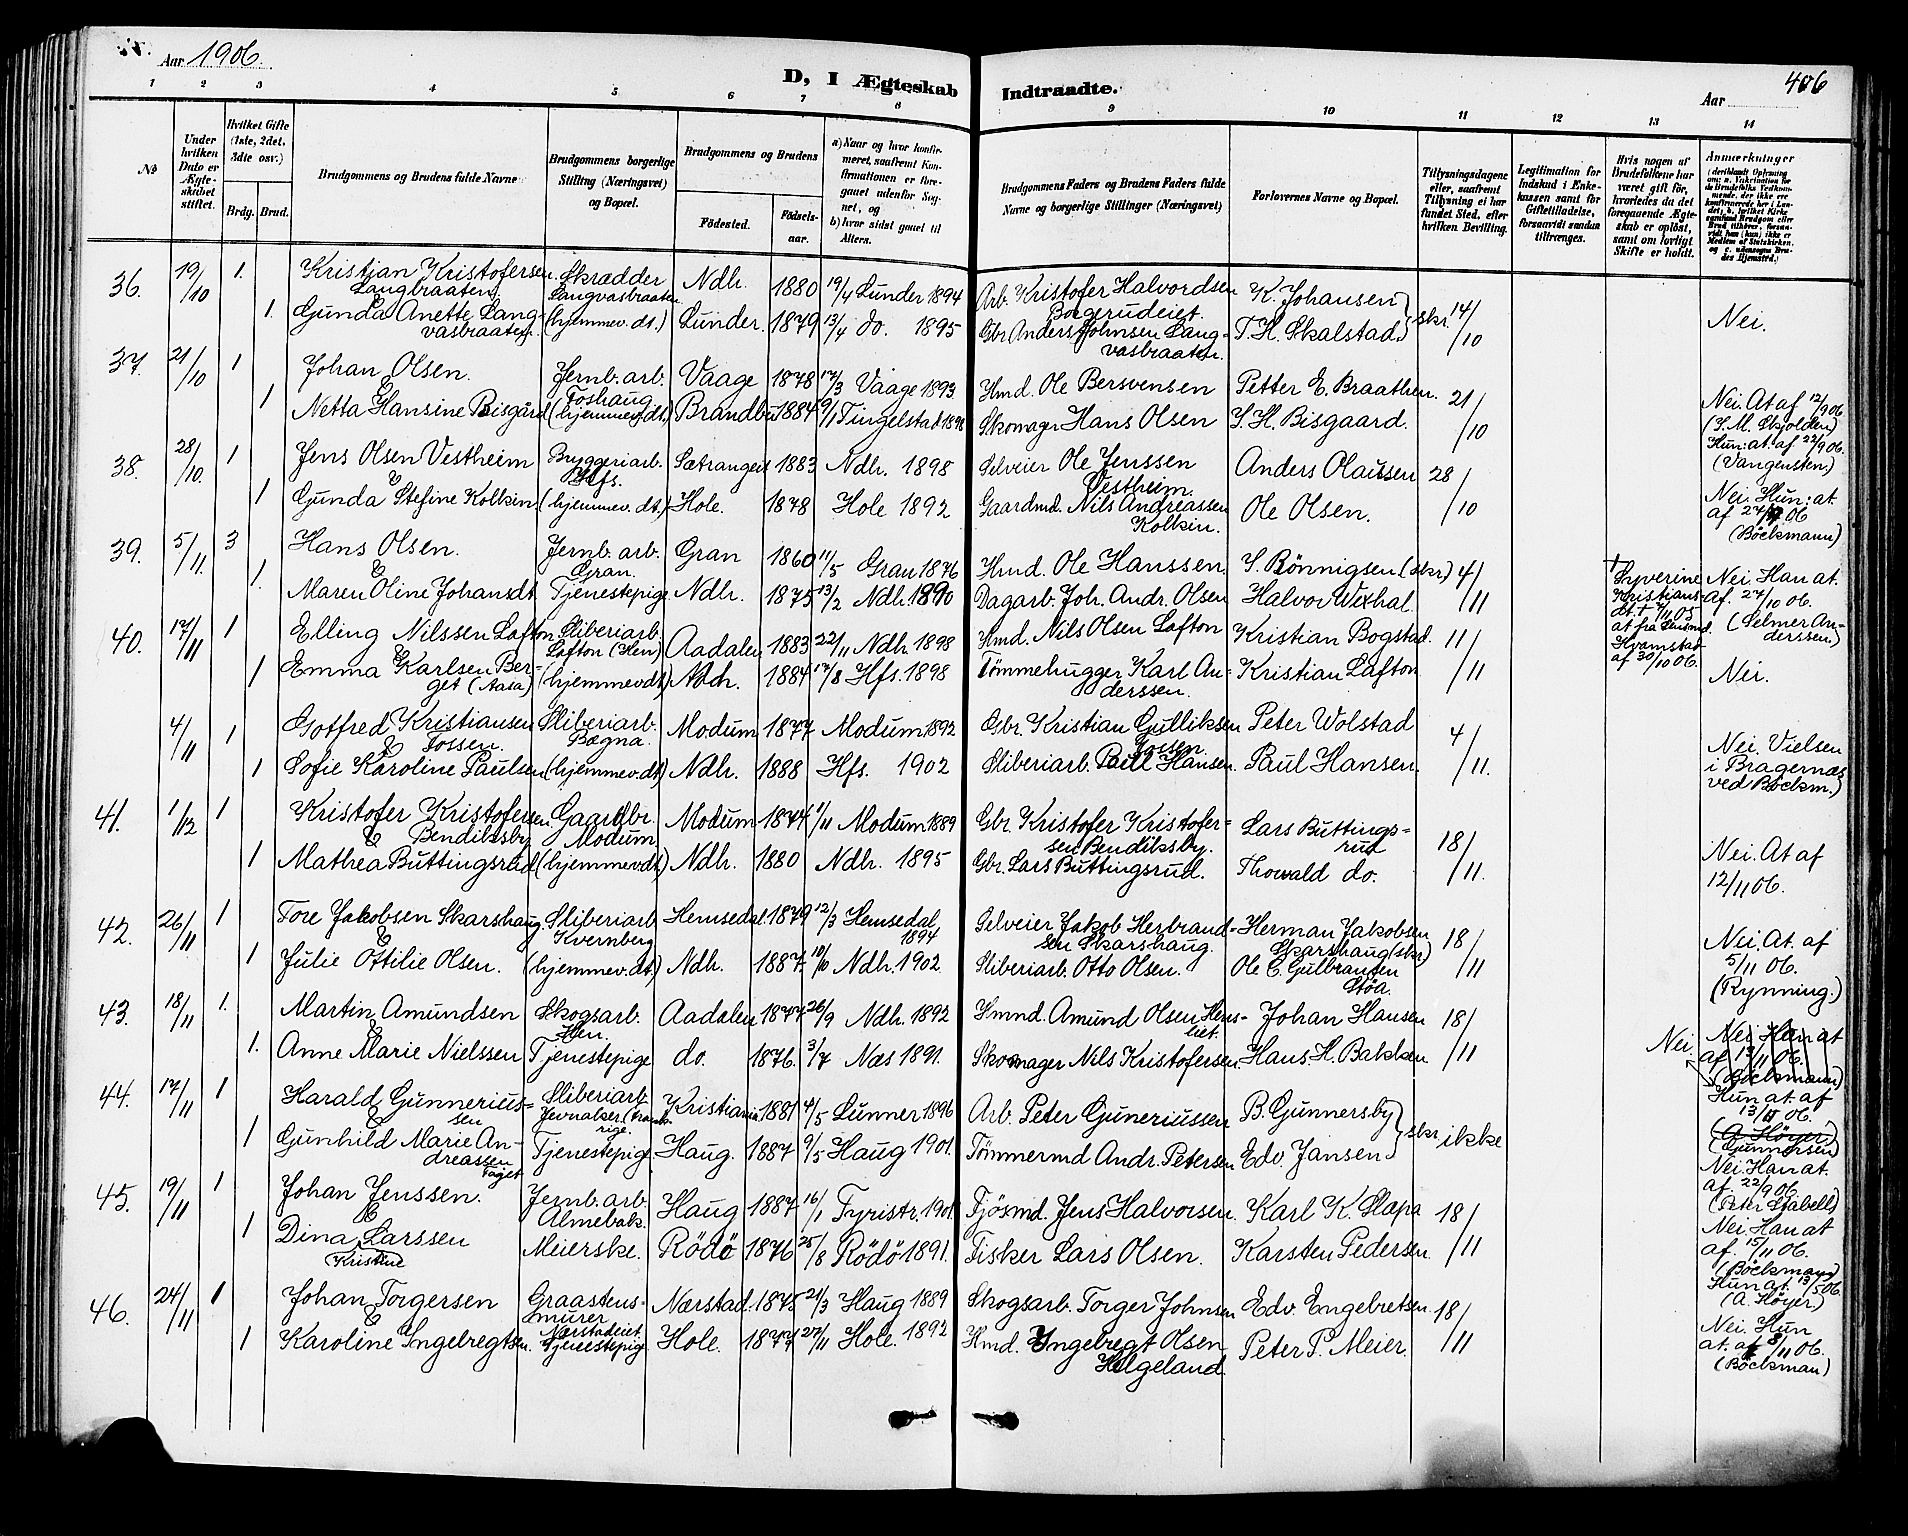 Aar 1906.
D, I Ægteskab Indtraadte.
Aar 406
1 2 3 4 5 6 7 8 9 10 11 12 13 14
No
Under hvilken Dato er Ægteskabet stiftet.
Hvilket Gifte (1ste, 2det, 3die osv.)
Brdg. Brud.
Brudgommens og Brudens fulde Navne
Brudgommens borgerlige Stilling (Næringsvei) og Bopæl.
Brudgommens og Brudens
Fødested.
Fødselsaar.
a) Naar og hvor konfirmeret, saafremt Konfirmationen er foregaaet udenfor Sognet, og b) hvor sidst gaaet til Alters.
Brudgommens Faders og Brudens Faders fulde Navne og borgerlige Stillinger (Næringsvei)
Forlovernes Navne og Bopæl.
Tillysningsdagene eller, saafremt Tillysning ei har fundet Sted, efter hvilken Bevilling.
Legitimation for Indskud i Enkekassen samt for Giftetilladelse, forsaavidt saadan tiltrænges.
Hvis nogen af Brudefolkene har været gift før, hvorledes da det foregaaende Ægteskab er opløst, samt om lovligt Skifte er holdt.
Anmerkninger
36. 19/10 1. Kristian Kristofersen Skrædder Ndh. 1880 19/4 Lunder 1894 Arb. Kristofer Halvordsen K. Johansen
Langbraaten Langvasbraaten Bagerudeiet.
& 1. Gunda Anette Lang- (hjemmev. dt.) Lunder. 1879 13/4 do. 1895 Gbr. Anders Johnsen Lang- T. H. Skalstad skr. 14/10 Nei.
vasbraaten. vasbraaten.
37. 21/10 1 Johan Olsen. Jernb. arb. Vaage 1878 17/3 Vaage 1893 Hmd. Ole Bersvensen Petter E. Braathen. 21/10 Nei. At af 12/9 06.
& Foshaug (S. M. Skjolden)
1 Netta Hansine Bisgård (hjemmev. dt.) Brandbu 1884 9/1 Tingelstad 1898 Skomager Hans Olsen S. H. Bisgaard. Hun: at. af 22/9 06.
(Vangensten)
38. 28/10 1 Jens Olsen Vestheim Bryggeriarb. Sætranger 1883 Ndh. 1898 Selveier Ole Jenssen Anders Olaussen 28/10
& Hfs. Vestheim.
1 Gunda Stefine Kolkin (hjemmev. dt.) Hole. 1878 Hole 1892 Gaardmd. Nils Andreassen Ole Olsen. Nei. Hun: at
Kolkin. af 27/9 06
(Böckmann)
39. 5/11. 3 Hans Olsen. Jernb. arb. Gran 1860 11/5 Gran 1876 Hmd. Ole Hanssen. S. Rönnigsen (skr) 4/11
& Gran.
1. Maren Oline Johansdt. Tjenestepige Ndh. 1875 13/2 Ndh. 1890 Dagarb. Joh. Andr. Olsen Halvor Wexhal.
† Syverine Kristians- dt. † 7/11 05 at fra Lensmd. Kvamstad af 30/10 06.
Nei. Han at. af. 27/10 06. (Selmer Anderssen)
40. 17/11 1 Elling Nilssen Lafton Sliberiarb. Aadalen 1883 22/11 Ndh. 1898 Hmd. Nils Olsen Lafton Kristian Bogstad. 11/11
& Lafton (Hen)
1 Emma Karlsen Ber- (hjemmev dt.) Ndh. 1884 17/8 Hfs. 1898 Tömmehugger Karl An- Kristian Lafton Nei.
get (Aasa) derssen.
4/11 1 Gotfred Kristiansen Sliberiarb. Modum 1877 Modum 1892 Gbr. Kristian Gulliksen Peter Wolstad 4/11.
& Fossen. Bægna. Fossen.
1 Sofie Karoline Paulsen (hjemmev. dt.) Ndh. 1888 Hfs. 1902 Sliberiarb. Paul Hansen. Paul Hansen.
Nei. Vielsen i Bragernæs ved Böckm.)
41. 1/12 1 Kristofer Kristofersen Gaardbr. Modum 1874 1/11 Modum 1889 Gbr. Kristofer Kristofer- Lars Buttings- 18/11.
& Bendiksby Modum sen Bendiksby. rud
1 Mathea Buttingsrud (hjemmev. dt.) Ndh. 1880 Ndh. 1895 Gbr. Lars Buttingsrud. Thorvald do.
Nei. At af 12/11 06.
42. 26/11 1 Tore Jakobsen Skarshaug. Sliberiarb Hemsedal. 1879 12/3 Hemsedal 1894 Selveier Jakob Herbrand- Herman Jakobsen 18/11
& Kvernberg sen Skarshaug. Skarshaug (skr)
1 Julie Ottilie Olsen. (hjemmev. dt.) Ndh. 1887. 10/10 Ndh. 1902. Sliberiarb. Otto Olsen. Ole C. Gulbransen
Støa.
Nei. At. af 5/11 06. (Rynning.)
43. 18/11 1. Martin Amundsen Skogsarb. Aadalen 1877 26/9 Ndh. 1892 Hmnd. Amund Olsen Hens- Johan Hansen 18/11
& Hen. eiet.
1. Anne Marie Nielssen Tjenestepige do. 1876. 3/7 Næs 1891. Skomager Nils Kristofersen. Hans. H. Bakken Nei.
Nei Han at af 13/11 06. (Böckmann)
44. 17/11 1 Harald Gunnerius- Sliberiarb Kristiania 1881 4/5 Lunner 1896 Arb. Peter Guneriussen B. Gunnersby
& sen Jevnaker
1 Gunhild Marie An- Tjenestepige. Haug. 1887 9/5 Haug 1901. Tömmermd Andr. Petersen Edv. Jansen skr. ikke
dreassen Faget
Hun at. af 13/11 06. (A. Höyer.) (Gunnersen)
45. 19/11 1 Johan Jenssen. Jernb. arb. Haug 1887 16/1 Tyristr. 1901. Tjösmd. Jens Halvorsen. Karl K. Slapa 18/11
& Almebak.
1 Dina Larssen Meierske. Rödö 1876 25/8 Rödö 1891. Fisker Lars Olsen. Karsten Pedersen
(Kristine
Nei Han at. af. 22/9 06. (Peter Stabell)
Nei. Han at af. 15/11 06. (Böckmann)
46. 24/11 1 Johan Torgersen Graastens- Nærstad. 1875 21/3 Haug 1889 Skogsarb. Torger Johnsen Edv. Engebretsen. 18/11
& murer
Nærstadeiet
1 Karoline Ingebregtsn. Tjenestepig. Hole. 1877 27/11 Hole. 1892 Hmd. Yngebregt Olsen Peter P. Meier.
Helgeland
Hun at. 13/5 06. (A. Höyer.)
Nei. Hun at. af. 8/11 06. (Böckman)